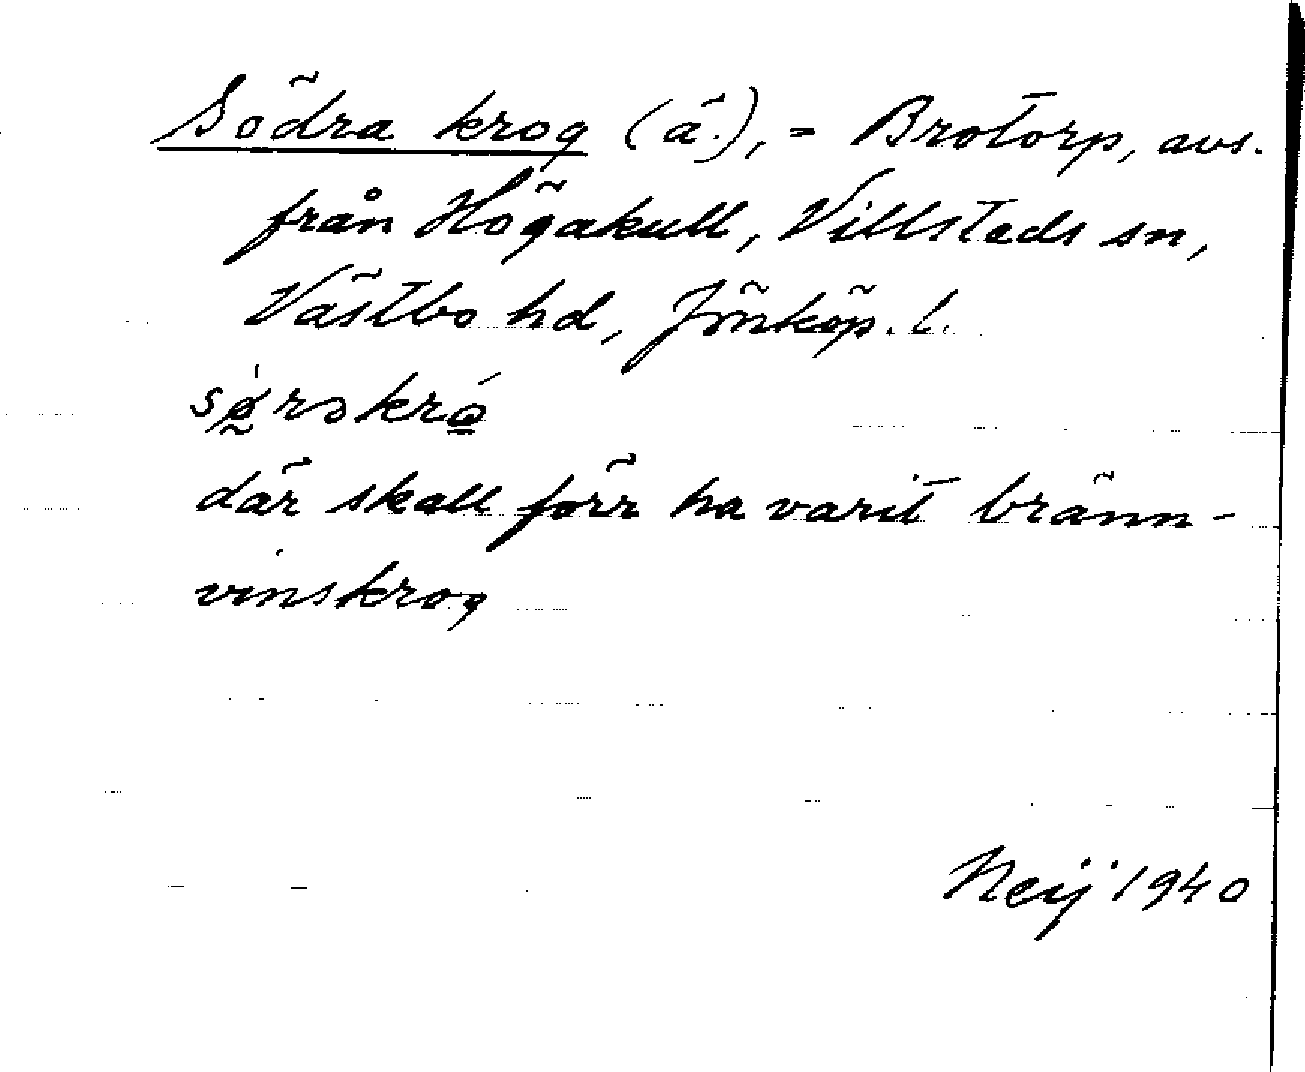 Södra krog (ä.), = Brotorp, avs.
från Högakull, Villstads sn,
Västbo hd, Jönköp. l.
där skall förr ha varit bränn-
vinskrog
Neij 1940